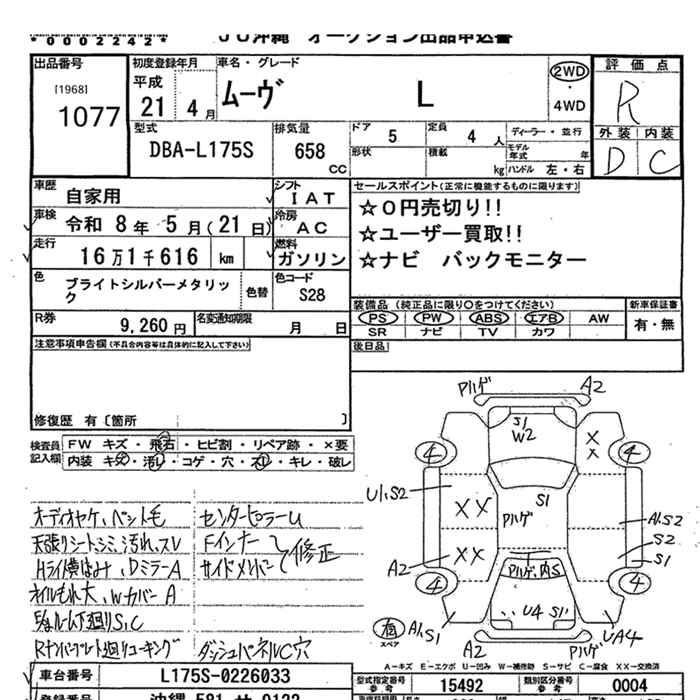 *0002242*
JU沖縄 オークション出品申込書
出品番号
[1968]
1077
初度登録年月
平成
21 4月
車名・グレード
ムーヴ L
2WD
・
4WD
評価点
R
外装 内装
D C
型式
DBA-L175S
排気量
658
CC
ドア 5
定員 4人
ディーラー・並行
形状
積載 kg
モデル年式 年
ハンドル 左・右
車歴
自家用
シフト
IAT
車検
令和 8年 5月(21日)
冷房
AC
走行
16万1千616 km
燃料
ガソリン
色
ブライトシルバーメタリック
色替
色コード
S28
R券
9,260円
名変通知期限
月 日
セールスポイント(正常に機能するものに限ります)
☆0円売切り!!
☆ユーザー買取!!
☆ナビ バックモニター
装備品(純正品に限り〇をつけてください)
新車保証書
PS PW ABS エアB AW
SR ナビ TV カワ
有・無
後日品
注意事項申告欄(不具合内容等は具体的に記入して下さい)
修復歴 有〔箇所 〕
検査員記入欄
FW キズ・飛石・ヒビ割・リペア跡・×要
内装 キズ・汚レ・コゲ・穴・スレ・キレ・破レ
オーディオヤケ、ペット毛
天張りシートシミ、汚れ、スレ
Hライト横はみ、DミラーA
オイルもれ大、WカバーA
下廻りS,C
Rナンバープレート廻りコーキング
センターピラーU
Fインナー
サイドメンバー
修正
ダッシュパネルC穴
Pハゲ
A2
S1
W2
×
×
4
4
U1,S2
××
Pハゲ
S1
A1,S2
S2
S1
A2
××
Pハゲ,内S
4
4
U4 S1
有
スペア
A1,S1
A2
Pハゲ
UA4
A-キズ E-エクボ U-凹み W-補修跡 S-サビ C-腐食 XX-交換済
車台番号
L175S-0226033
型式指定番号
参考
15492
類別区分番号
参考
0004
登録番号
沖縄 581 サ 9132